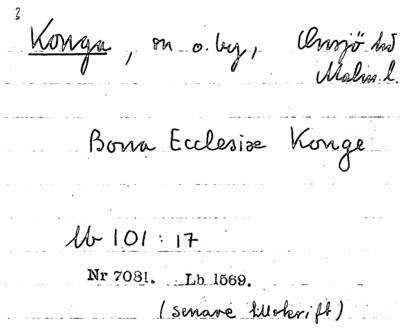 3
Konga, sn o. by, Onsjö hd
Malm. l.
Bona Ecclesiæ Konge
Mb 101:17
Nr 7081. Lb 1569.
(senare tillskrift)